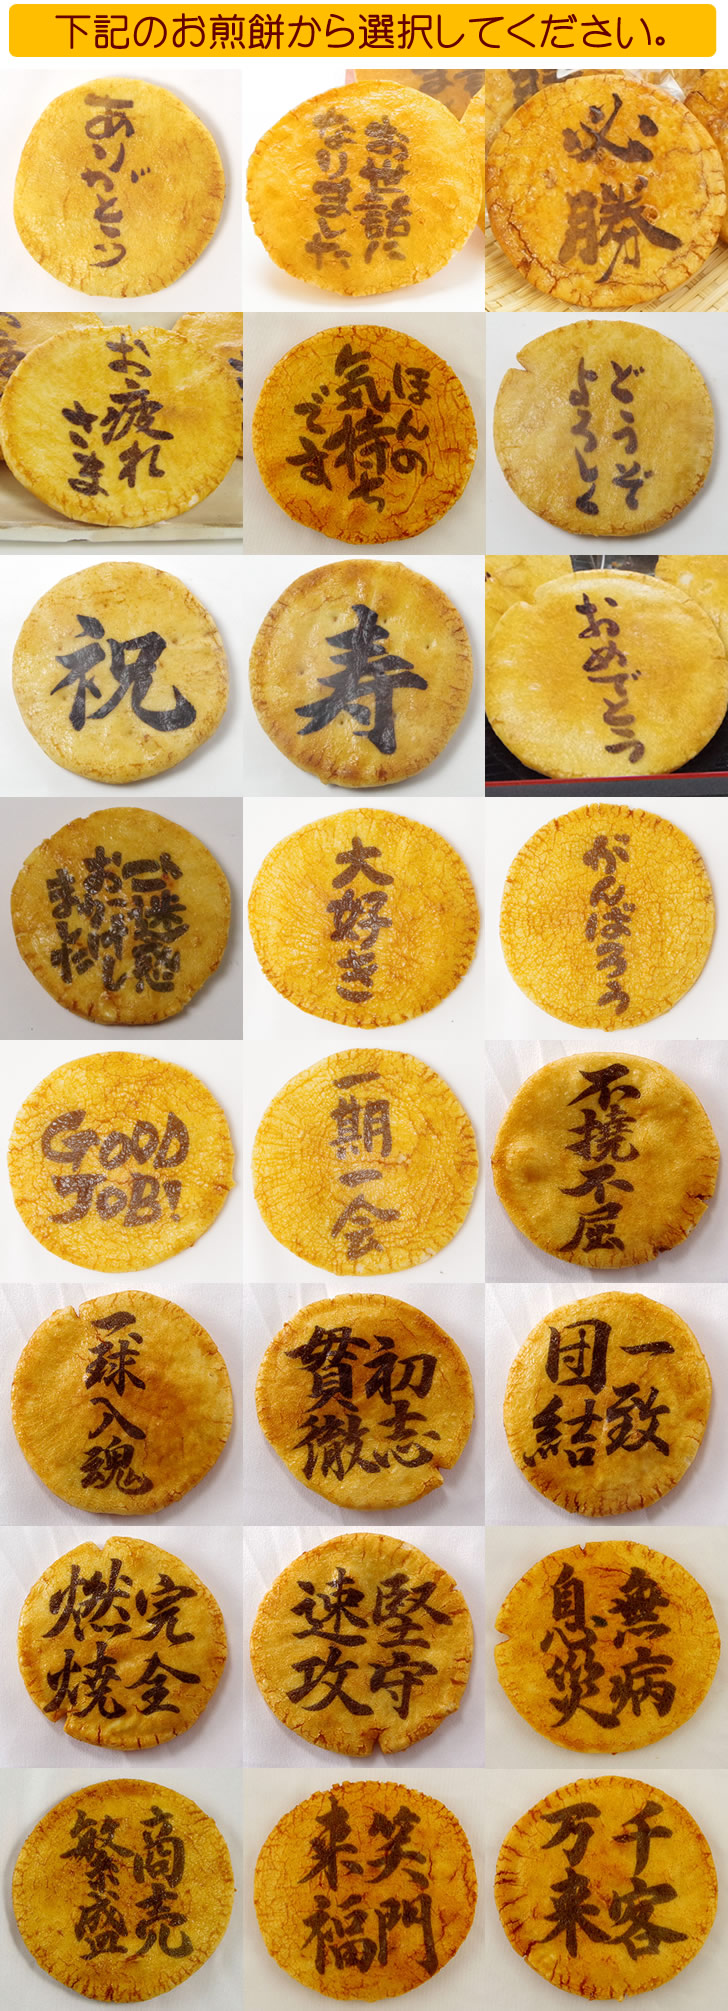 下記のお煎餅から選択してください。
ありがとう
お世話に
なりました
必勝
お疲れ
さま
ほんの
気持ち
です
どうぞ
よろしく
祝
寿
おめでとう
ご迷惑
おかけし
ました
大好き
がんばろう
GOOD
JOB!
一期一会
不撓不屈
一球入魂
初志
貫徹
一致
団結
完全
燃焼
堅守
速攻
無病
息災
商売
繁盛
笑門
来福
千客
万来